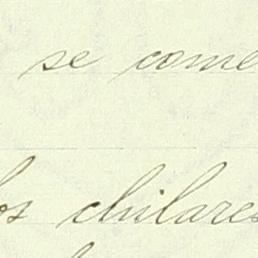 se come
los chilares